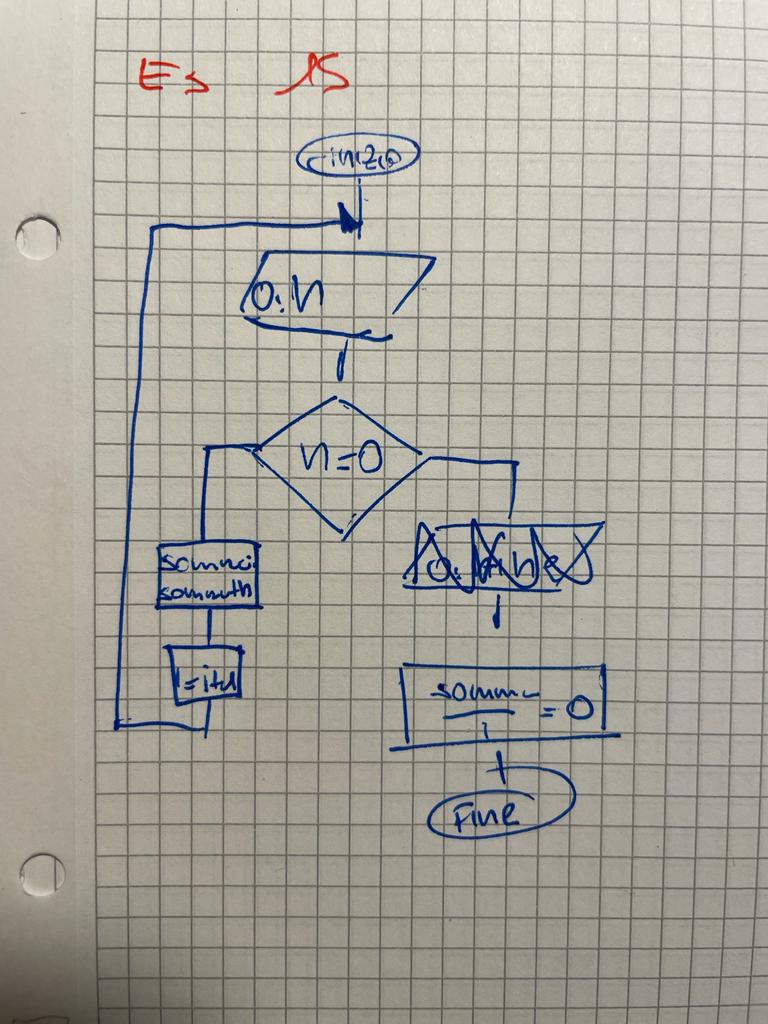 Es 15
inizo
o.n
n=0
somma:
somma+n
i=i+1
somma
i
= 0
Fine